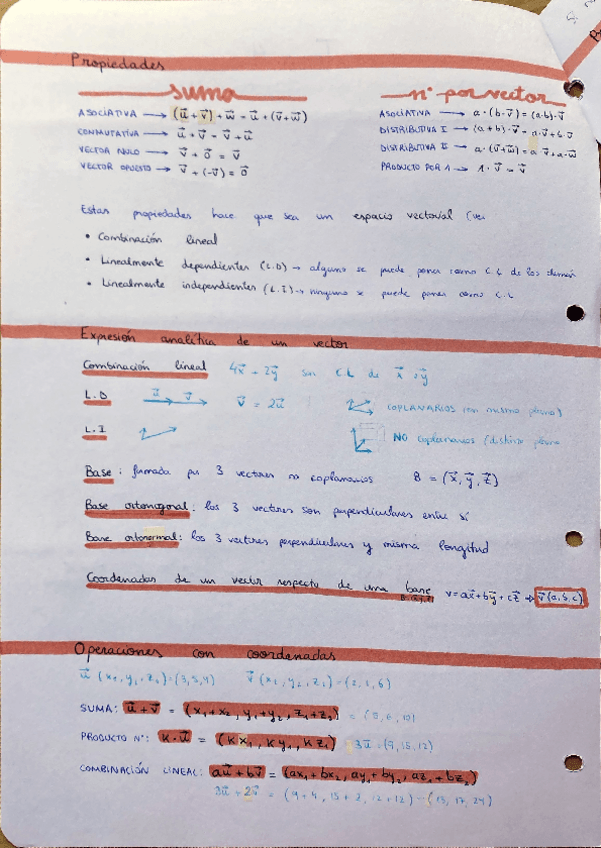 Propiedades
suma
ASOCIATIVA → (u⃗+v⃗)+w⃗ = u⃗+(v⃗+w⃗)
CONMUTATIVA → u⃗+v⃗ = v⃗+u⃗
VECTOR NULO → v⃗+0⃗ = v⃗
VECTOR OPUESTO → v⃗+(-v⃗)=0⃗
nº por vector
ASOCIATIVA → a·(b·v⃗)=(a·b)·v⃗
DISTRIBUTIVA I → (a+b)·v⃗=a·v⃗+b·v⃗
DISTRIBUTIVA II → a·(v⃗+w⃗)=a·v⃗+a·w⃗
PRODUCTO POR 1 → 1·v⃗=v⃗
Estas propiedades hace que sea un espacio vectorial
• Combinación lineal
• Linealmente dependientes (L.D) → alguno se puede poner como C.L de los demás
• Linealmente independientes (L.I) → ninguno se puede poner como C.L
Expresión analítica de un vector
Combinación lineal 4x⃗ + 2y⃗ son C.L de x⃗ y y⃗
L.D u⃗ v⃗ v⃗ = 2u⃗ COPLANARIOS (en mismo plano)
L.I NO coplanarios (distinto plano
Base: formada por 3 vectores no coplanarios B = (x⃗, y⃗, z⃗)
Base ortonogonal: los 3 vectores son perpendiculares entre sí
Base ortonormal: los 3 vectores perpendiculares y misma longitud
Coordenadas de un vector respecto de una base v=ax⃗+by⃗+cz⃗ → v⃗(a,b,c)
Operaciones con coordenadas
SUMA: u⃗+v⃗ = (x₁+x₂, y₁+y₂, z₁+z₂)
PRODUCTO Nº: K·u⃗ = (Kx₁, Ky₁, Kz₁) 3u⃗=(9,15,12)
COMBINACIÓN LINEAL: au⃗+bv⃗ = (ax₁+bx₂, ay₁+by₂, az₁+bz₂)
3u⃗+2v⃗ = (9+4, 15+2, 12+12)